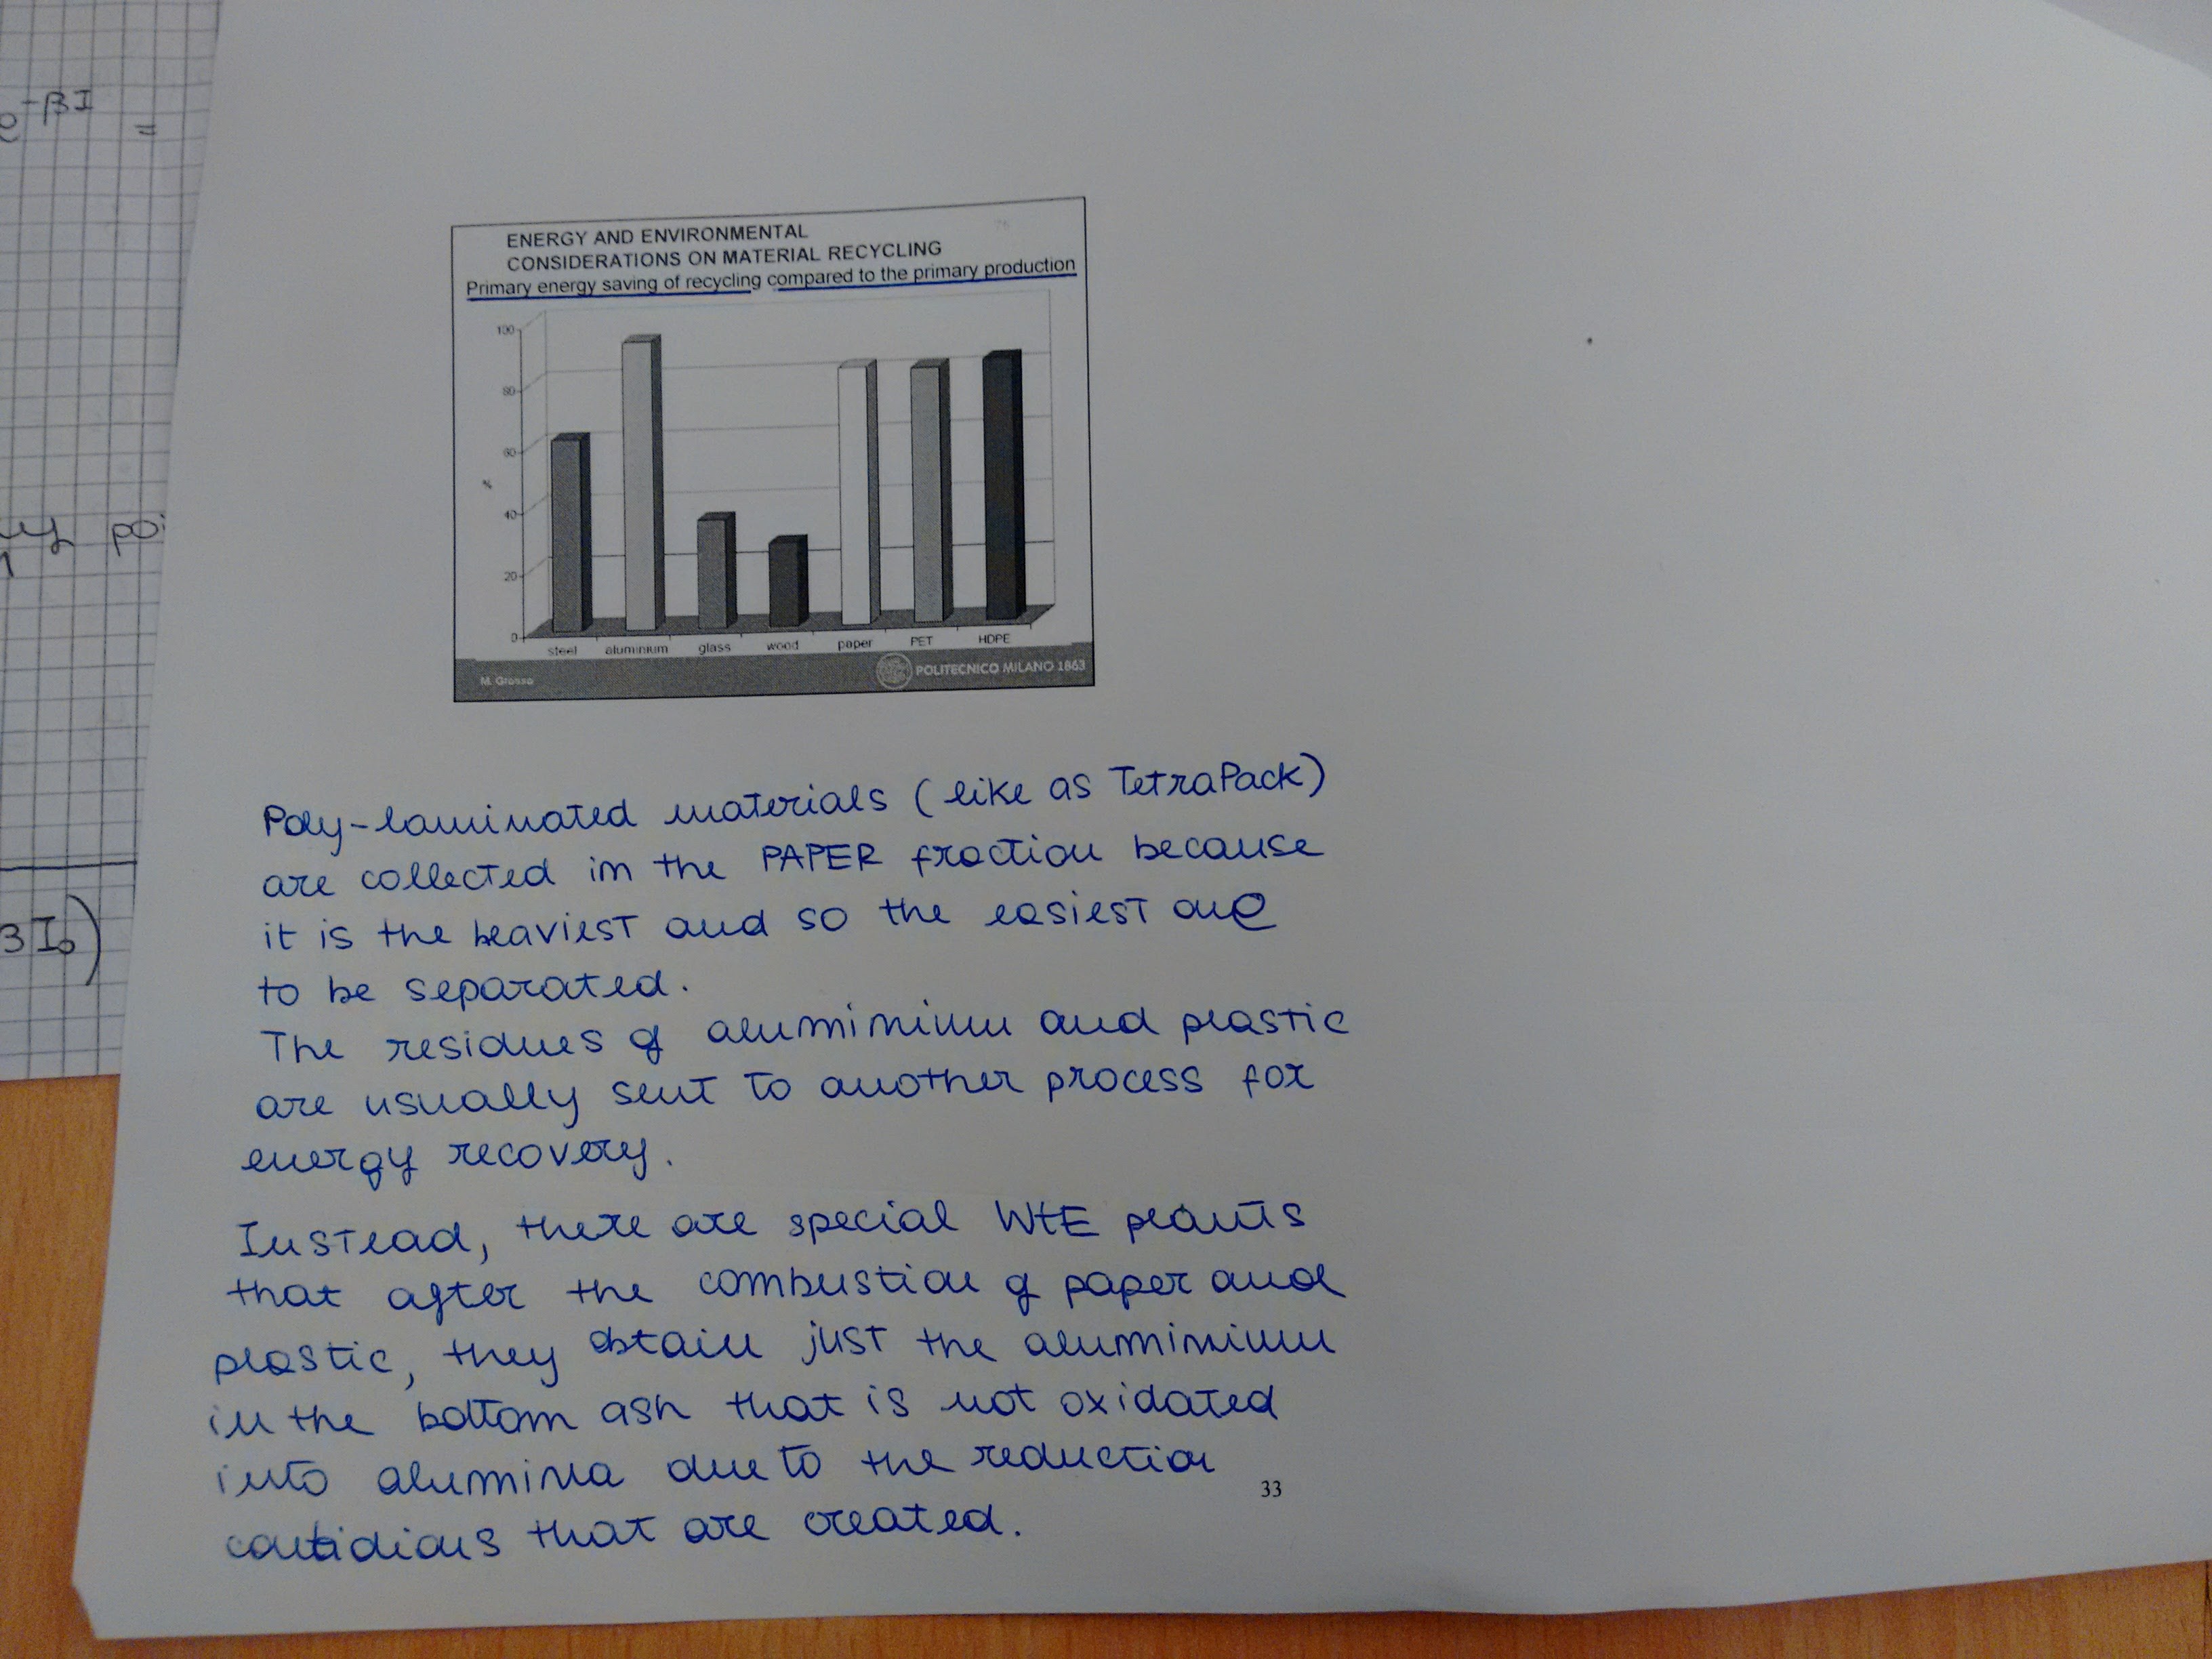 e-βI =
poi
3I₀)
76
ENERGY AND ENVIRONMENTAL
CONSIDERATIONS ON MATERIAL RECYCLING
Primary energy saving of recycling compared to the primary production
100
80
60
%
40
20
0
steel aluminium glass wood paper PET HDPE
M. Grosso POLITECNICO MILANO 1863
Poly-laminated materials (like as TetraPack)
are collected in the PAPER fraction because
it is the heaviest and so the easiest one
to be separated.
The residues of aluminium and plastic
are usually sent to another process for
energy recovery.
Instead, there are special WtE plants
that after the combustion of paper and
plastic, they obtain just the aluminium
in the bottom ash that is not oxidated
into alumina due to the reduction
contidions that are created.
33